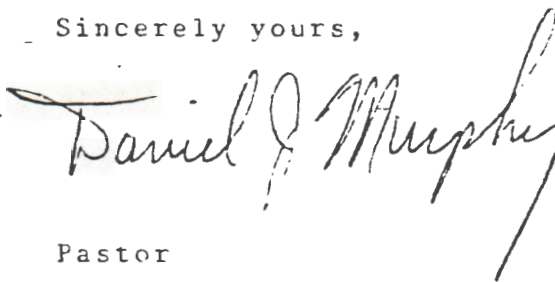 Sincerely yours,
Daniel J Murphy
Pastor